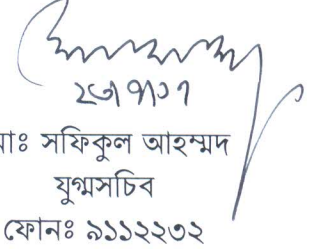 সফিকুল আহম্মদ
যুগ্মসচিব
ফোনঃ ৯১১২২৩২